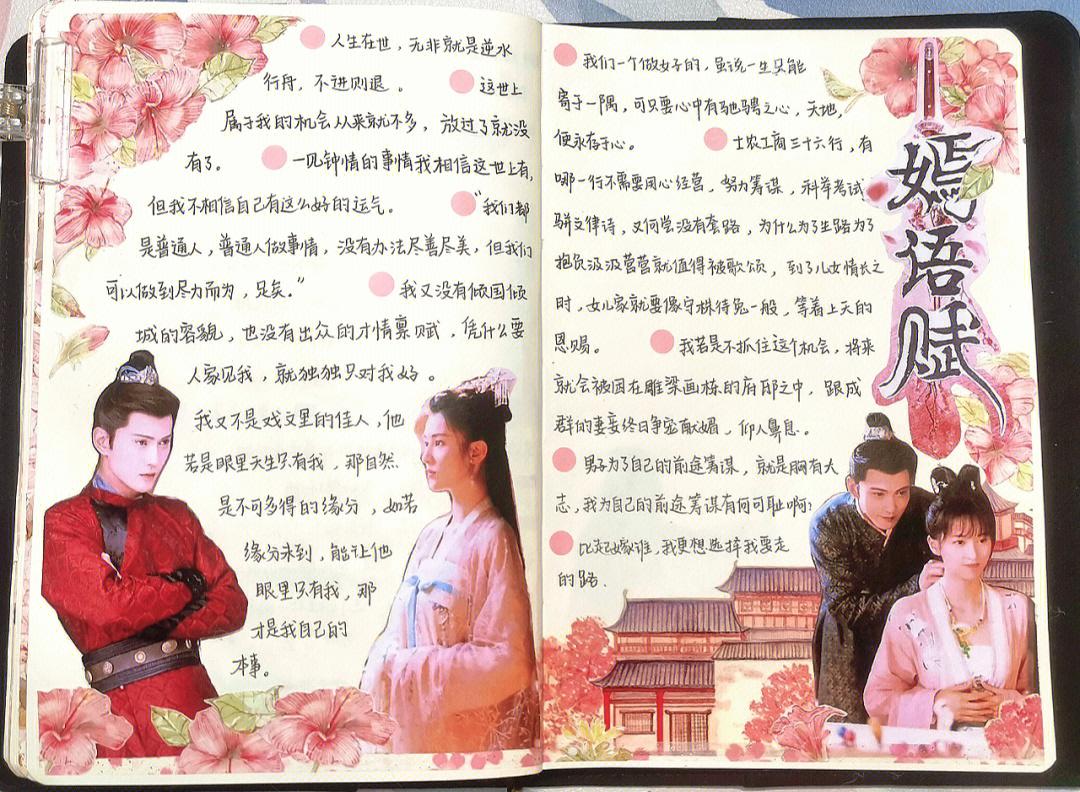 人生在世，无非就是逆水
行舟，不进则退。 这世上
属于我的机会从来就不多，放过了就没
有了。 一见钟情的事情我相信这世上有，
但我不相信自己有这么好的运气。 “我们都
是普通人，普通人做事情，没有办法尽善尽美，但我们
可以做到尽力而为，足矣。” 我又没有倾国倾
城的容貌，也没有出众的才情禀赋，凭什么要
人家见我，就独独只对我好。
我又不是戏文里的佳人，他
若是眼里天生只有我，那自然
是不可多得的缘分，如若
缘分未到，能让他
眼里只有我，那
才是我自己的
本事。
我们一个做女子的，虽说一生只能
寄于一隅，可只要心中有驰骋之心，天地，
便永存于心。 士农工商三十六行，有
哪一行不需要用心经营，努力筹谋，科举考试
骈文律诗，又何尝没有套路，为什么为了生路为了
抱负汲汲营营就值得被歌颂，到了儿女情长之
时，女儿家就要像守株待兔一般，等着上天的
恩赐。 我若是不抓住这个机会，将来
就会被困在雕梁画栋的府邸之中，跟成
群的妻妾终日争宠献媚，仰人鼻息。
男子为了自己的前途筹谋，就是胸有大
志，我为自己的前途筹谋有何可耻啊？
比起嫁谁，我更想选择我要走
的路.
嫣语赋